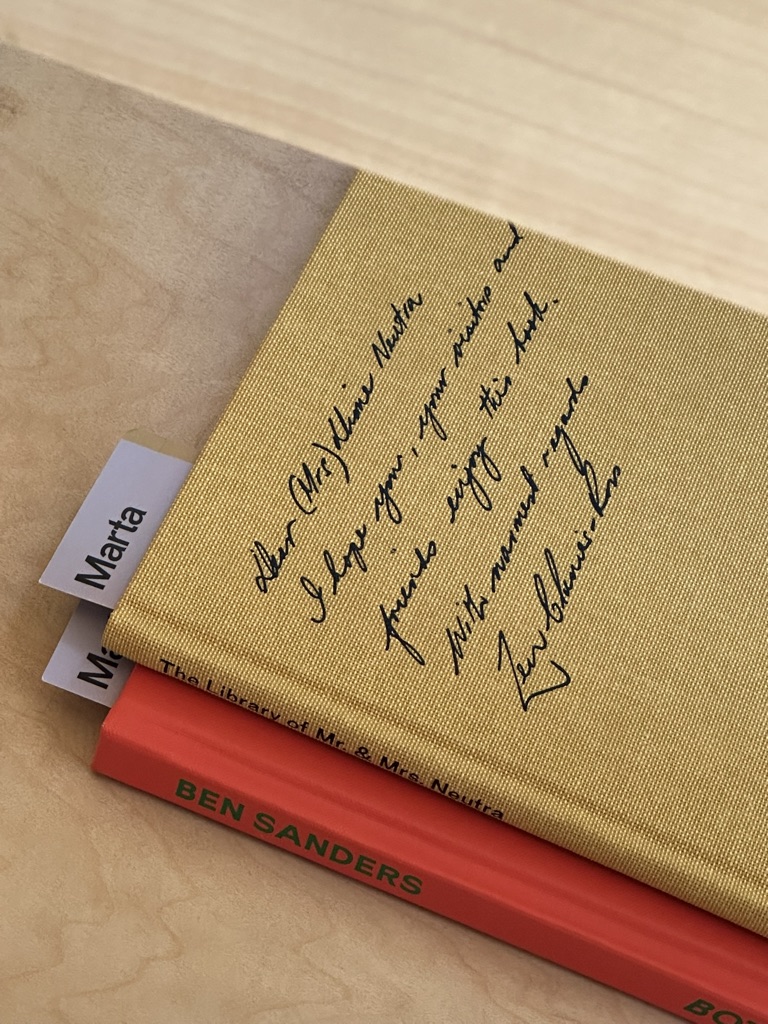 Dear (Mrs) Dione Neutra
I hope you, your visitors and
friends enjoy this book.
With warmest regards
Marta
Ma
The Library of Mr. & Mrs. Neutra
BEN SANDERS
BOT